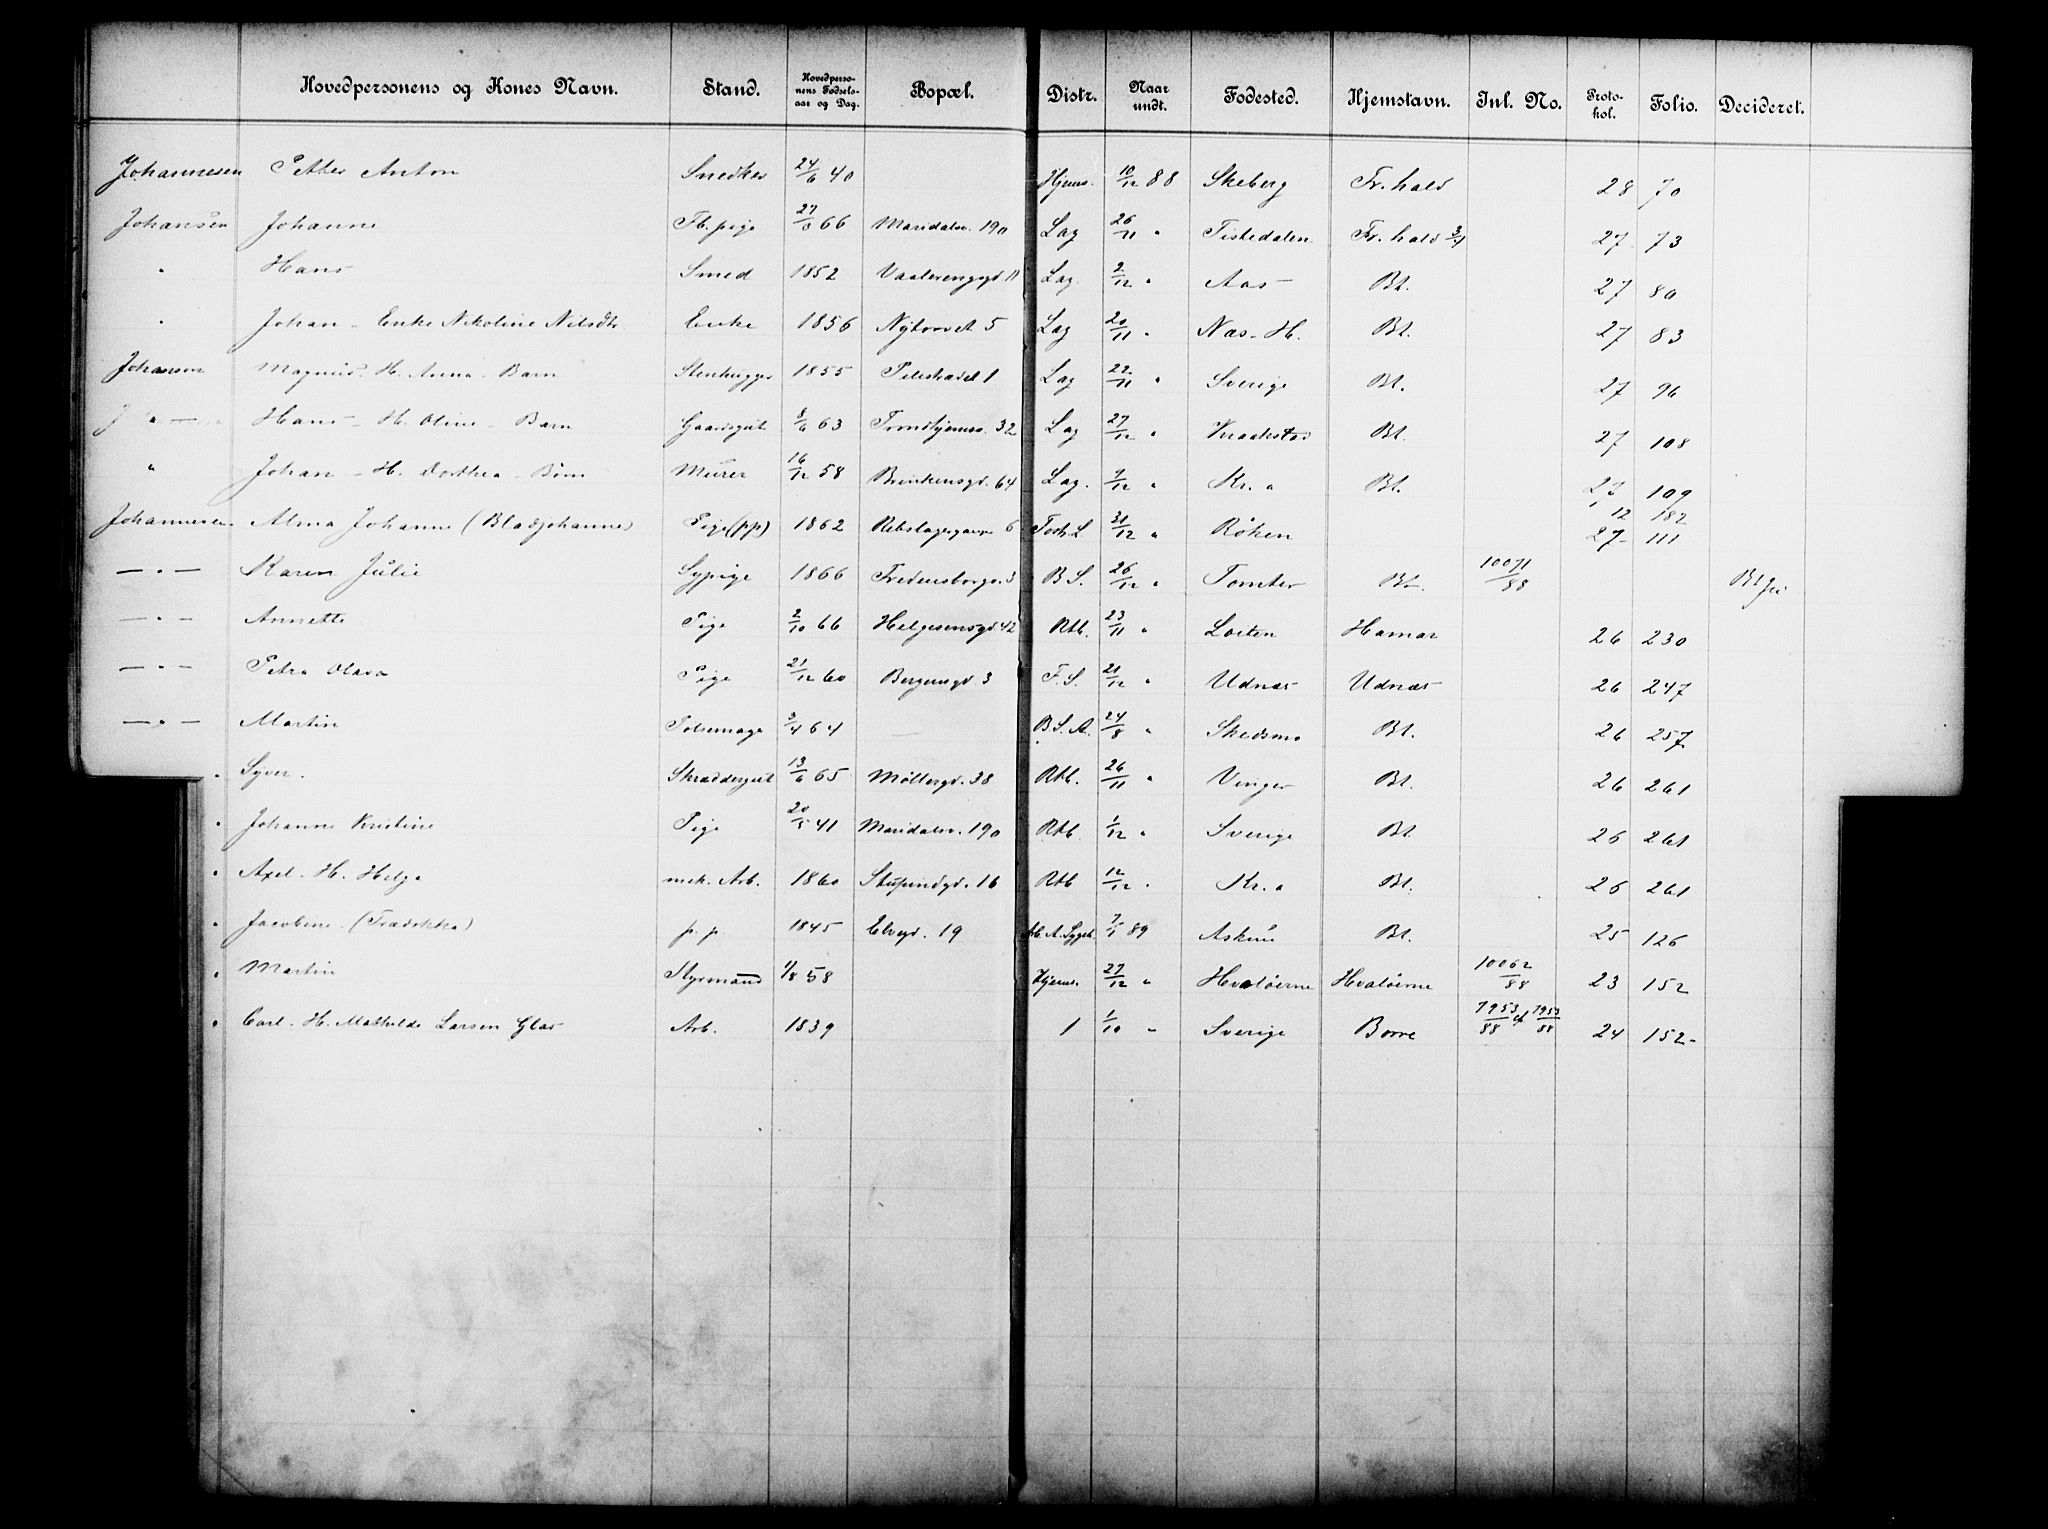 Hovedpersonens og Kones Navn. Stand. Hovedperso-nens Fødsels-aar og Dag. Bopæl. Distr. Naar undt. Fødested. Hjemstavn. Inl. No. Proto-kol. Folio. Decideret.
Johannesen Petter Anton Snedker 24/6 40 Hjems. 10/12 88 Skeberg Fr.hald 28 70
Johansen Johanne Fb.pige 27/8 66 Maridalsv. 190 Lag 26/11 " Tistedalen Fr.hald 27 73
" Hans Smed 1852 Vaalerengsgd. 11 Lag. 2/12 " Aas Bt. 27 80
" Johan - Enke Nikoline Nilsdtr Enke 1856 Nytorvet 5 Lag 20/11 " Næs. H. Bt. 27 83
Johansen Magnus. H. Anna - Barn Stenhugger 1855 Pilestrædet 1 Lag 22/11 " Sverige Bt. 27 96
" Hans - H. Oline - Barn Gaardsgut 8/6 63 Trondhjemsv. 32 Lag 27/12 " Kraakstad Bt. 27 108
" Johan - H. Dorthea - Børn Murer 16/12 58 Brinkensgd. 64 Lag. 7/12 " Kr.a Bt. 27 109
Johannesen Alma Johanne (Bladjohanne) Pige (pp) 1862 Rebslagergaden 6 31/12 " Røken 12 182 27 111
— " — Karen Julie Sypige 1866 Fredensborgv. 3 B S. 26/12 " Tomter Bt. 10071/88
— " — Annette Pige 2/10 66 Helgesensgd. 42 Rtb. 23/11 " Løiten Hamar 26 230
— " — Petra Olava Pige 21/12 60 Bergensgd. 3 F. S. 21/12 " Udnæs Udnæs 26 247
— " — Martin Pølsemager 3/4 64 — B. S. A. 24/8 " Skedsmo Bt. 26 257
" Syver. Skræddergut 13/6 65 Møllergd. 38 Rtb. 26/11 " Vinger Bt. 26 261
" Johanne Kristine Pige 20/5 41 Maridalsv. 190 Rtb. 1/12 " Sverige Bt. 26 261
" Axel - H. Helga mek. Arb. 1860 Stupindgd. 16 Rtb 12/12 " Kr.a Bt. 26 261
" Jacobine. (Trædokka) p. p 1845 Elvegd. 19 7/1 89 Askim Bt. 25 126
" Martin Styrmand 1/8 58 Hjems. 27/12 " Hvaløerne Hvaløerne 10062/88 23 152
" Carl - H. Mathilde Larsen Glas Arb. 1839 1 1/10 " Sverige Borre 7953/88 cf 7953/88 24 152-